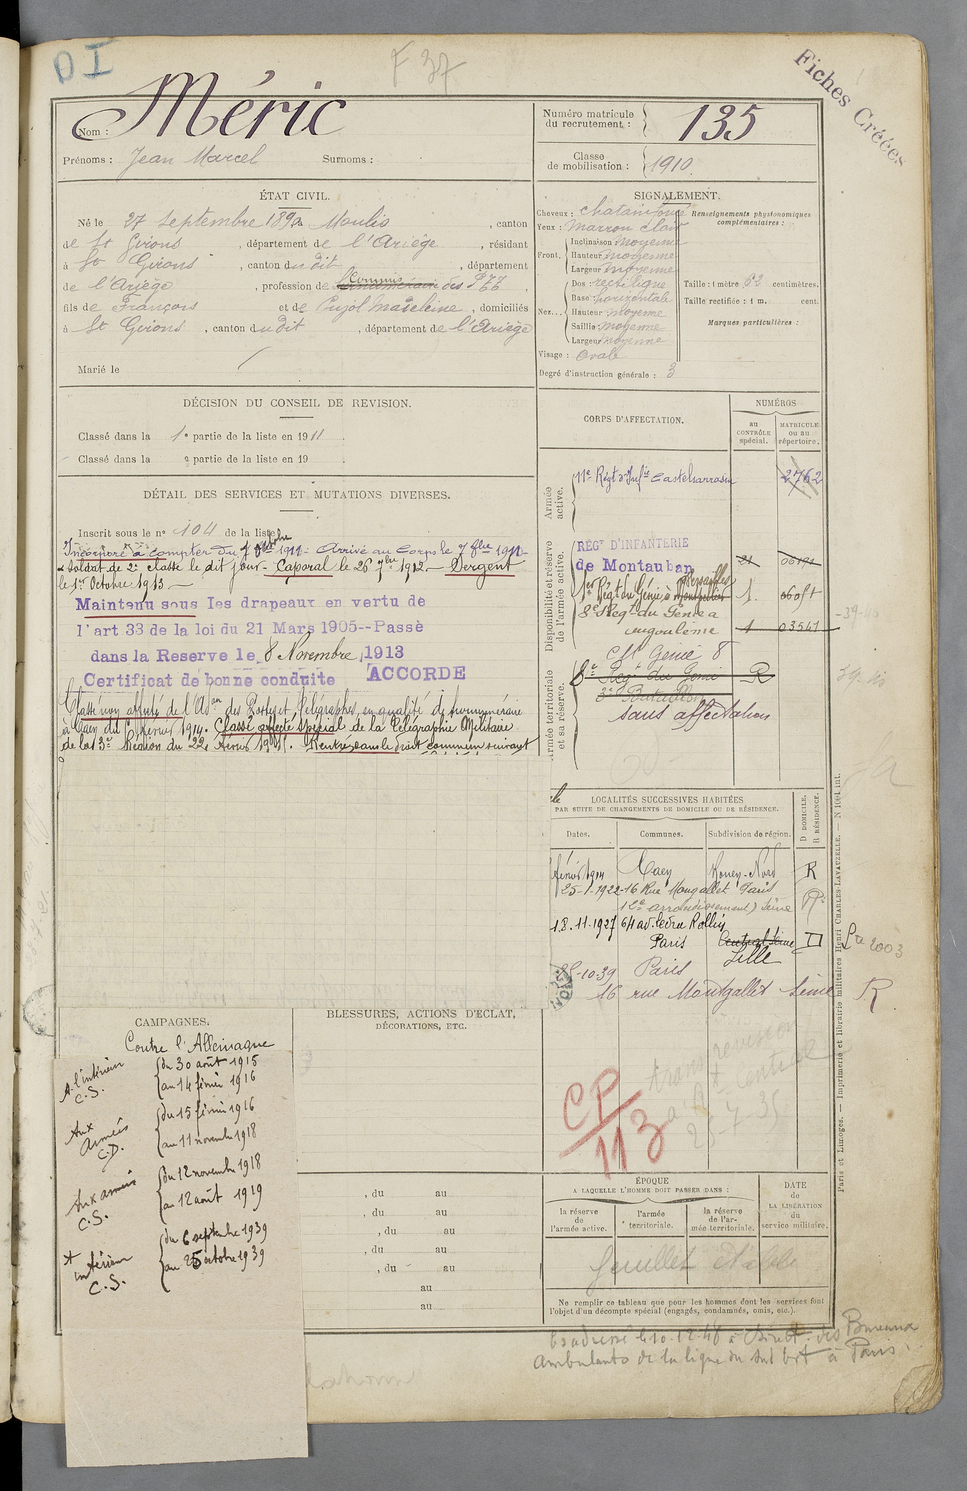 DI
F 37
Fiches Créées
Nom : Méric
Prénoms : Jean Marcel Surnoms :
Numéro matricule du recrutement : 135
Classe de mobilisation : 1910
ÉTAT CIVIL.
Né le 27 Septembre 1890 à Moulis, canton
de St Girons, département de l'Ariège, résidant
à St Girons, canton dudit, département
de l'Ariège, profession de Commis des PTT,
fils de François et de Pujol Madeleine, domiciliés
à St Girons, canton dudit, département de l'Ariège
Marié le
SIGNALEMENT.
Cheveux : chatain foncé
Yeux : marron clair
Front. Inclinaison moyenne
Hauteur moyenne
Largeur moyenne
Nez... Dos rectiligne
Base horizontale
Hauteur moyenne
Saillie moyenne
Largeur moyenne
Visage : ovale
Degré d'instruction générale : 3
Renseignements physionomiques complémentaires :
Taille : 1 mètre 62 centimètres.
Taille rectifiée : 1 m. cent.
Marques particulières :
DÉCISION DU CONSEIL DE REVISION.
Classé dans la 1e partie de la liste en 1911.
Classé dans la e partie de la liste en 19 .
DÉTAIL DES SERVICES ET MUTATIONS DIVERSES.
Inscrit sous le no 104 de la liste
Incorporé à compter du 7 8bre 1911. Arrivé au Corps le 7 8bre 1911
& Soldat de 2e classe le dit jour - Caporal le 26 7bre 1912 - Sergent
le 1er Octobre 1913 -
Maintenu sous les drapeaux en vertu de
l'art 33 de la loi du 21 Mars 1905--Passè
dans la Reserve le 8 Novembre 1913
Certificat de bonne conduite ACCORDE
Classé non affecté de l'Adon des Postes et Télégraphes, en qualité de surnuméraire
à Caen du février 1914. Classé affecté spécial de la Télégraphie Militaire
de la 3e Région du 22 février 1915. Rentré dans le droit commun suivant
CORPS D'AFFECTATION.
NUMÉROS
au CONTRÔLE spécial.
MATRICULE ou au répertoire.
Armée active.
11e Régt d'Infie Castelsarrasin 2762
Disponibilité et réserve de l'armée active.
RÉGt D'INFANTERIE
de Montauban
1er Régt du Génie à Versailles 1.
8e Régt du Génie à
Angoulême 1 03547
Armée territoriale et sa réserve.
Cst Génie 8
8e Régt du Génie R
sans affectation
LOCALITÉS SUCCESSIVES HABITÉES
PAR SUITE DE CHANGEMENTS DE DOMICILE OU DE RÉSIDENCE.
Dates. Communes. Subdivision de région. D DOMICILE. R RÉSIDENCE.
février 1914 Caen Rouen-Nord R
25-1-1922 16 Rue Mongallet Paris
12e arrondissement) Seine
18.11.1927 64 av. Ledru Rollin
Paris Central Seine D
Lille
-10-39 Paris
16 rue Montgallet Seine R
Paris et Limoges. — Imprimerie et librairie militaires Henri CHARLES-LAVAUZELLE. — N 1004 int.
CAMPAGNES.
Contre l'Allemagne
A l'intérieur C.S. du 30 août 1915
au 14 février 1916
Aux armées C.D. du 15 février 1916
au 11 novembre 1918
Aux armées C.S. du 12 novembre 1918
au 12 août 1919
A intérieur C.S. du 6 septembre 1939
au 25 octobre 1939
BLESSURES, ACTIONS D'ÉCLAT,
DÉCORATIONS, ETC.
, du au
, du au
, du au
, du au
, du au
au
au
CP
113
ÉPOQUE
A LAQUELLE L'HOMME DOIT PASSER DANS :
la réserve de l'armée active.
l'armée territoriale.
la réserve de l'armée territoriale.
DATE de LA LIBÉRATION du service militaire.
feuillet
Ne remplir ce tableau que pour les hommes dont les services font
l'objet d'un décompte spécial (engagés, condamnés, omis, etc.).
des Bureaux
ambulants de la ligne du Sud Est à Paris.